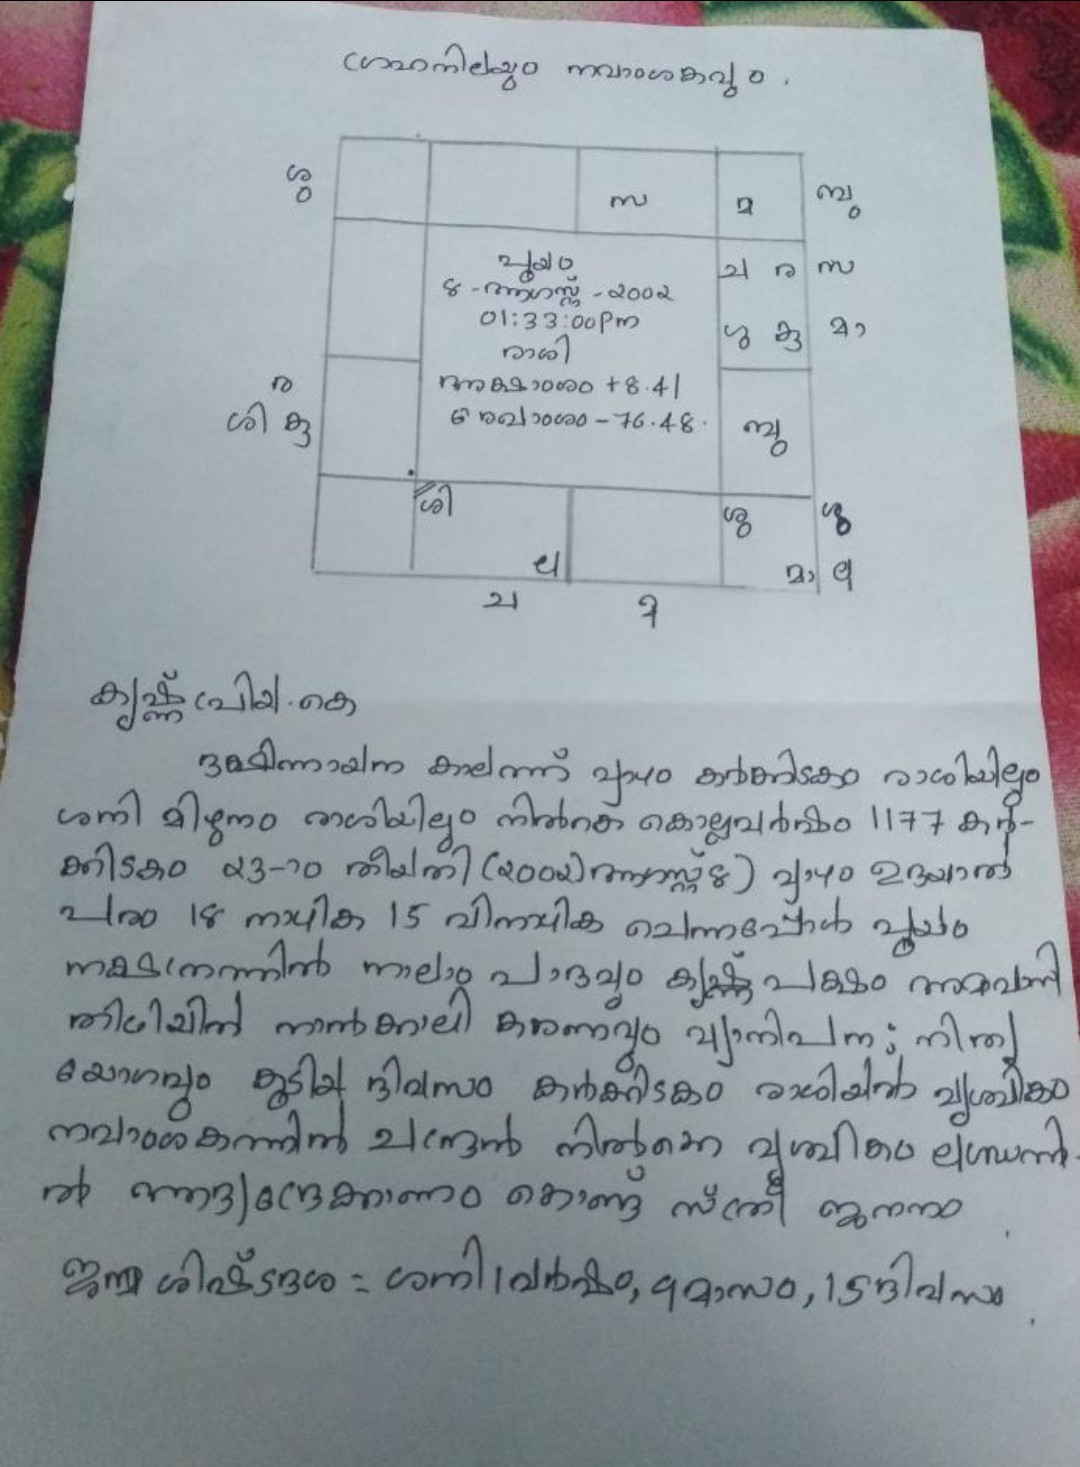 ഗ്രഹനിലയും നവാംശകവും.
ശു
സ മ ബു
പൂയം
8-ആഗസ്റ്റ്-2002
01:33:00pm
രാശി
അക്ഷാംശം +8.41
രേഖാംശം -76.48.
ച ര സ
ശു കു മാ
ര
ശി കു
ബു
ശി
ശു ശു
ല
മാ ല
ച
കൃഷ്ണപ്രിയ.കെ
ദക്ഷിണായന കാലത്ത് വ്യാഴം കർക്കിടകം രാശിയിലും
ശനി മിഥുനം രാശിയിലും നിൽക്കെ കൊല്ലവർഷം 1177 കർ-
ക്കിടകം 23-ാം തീയതി (2002 ആഗസ്റ്റ് 8) വ്യാഴം ഉദയാൽ
പരം 18 നാഴിക 15 വിനാഴിക ചെന്നപ്പോൾ പൂയം
നക്ഷത്രത്തിൻ നാലാം പാദവും കൃഷ്ണ പക്ഷം അമവാസി
തിഥിയിൽ നാൽക്കാലി കരണവും വ്യതിപത നിത്യ
യോഗവും കൂടിയ ദിവസം കർക്കിടകം രാശിയിൽ വൃശ്ചികം
നവാംശകത്തിൽ ചന്ദ്രൻ നിൽക്കെ വൃശ്ചികം ലഗ്നത്തി-
ൽ ദ്രേക്കാണം കൊണ്ട് സ്ത്രീ ജനനം
ജന്മ ശിഷ്ടദശ = ശനി 1 വർഷം, 9 മാസം, 15 ദിവസം.